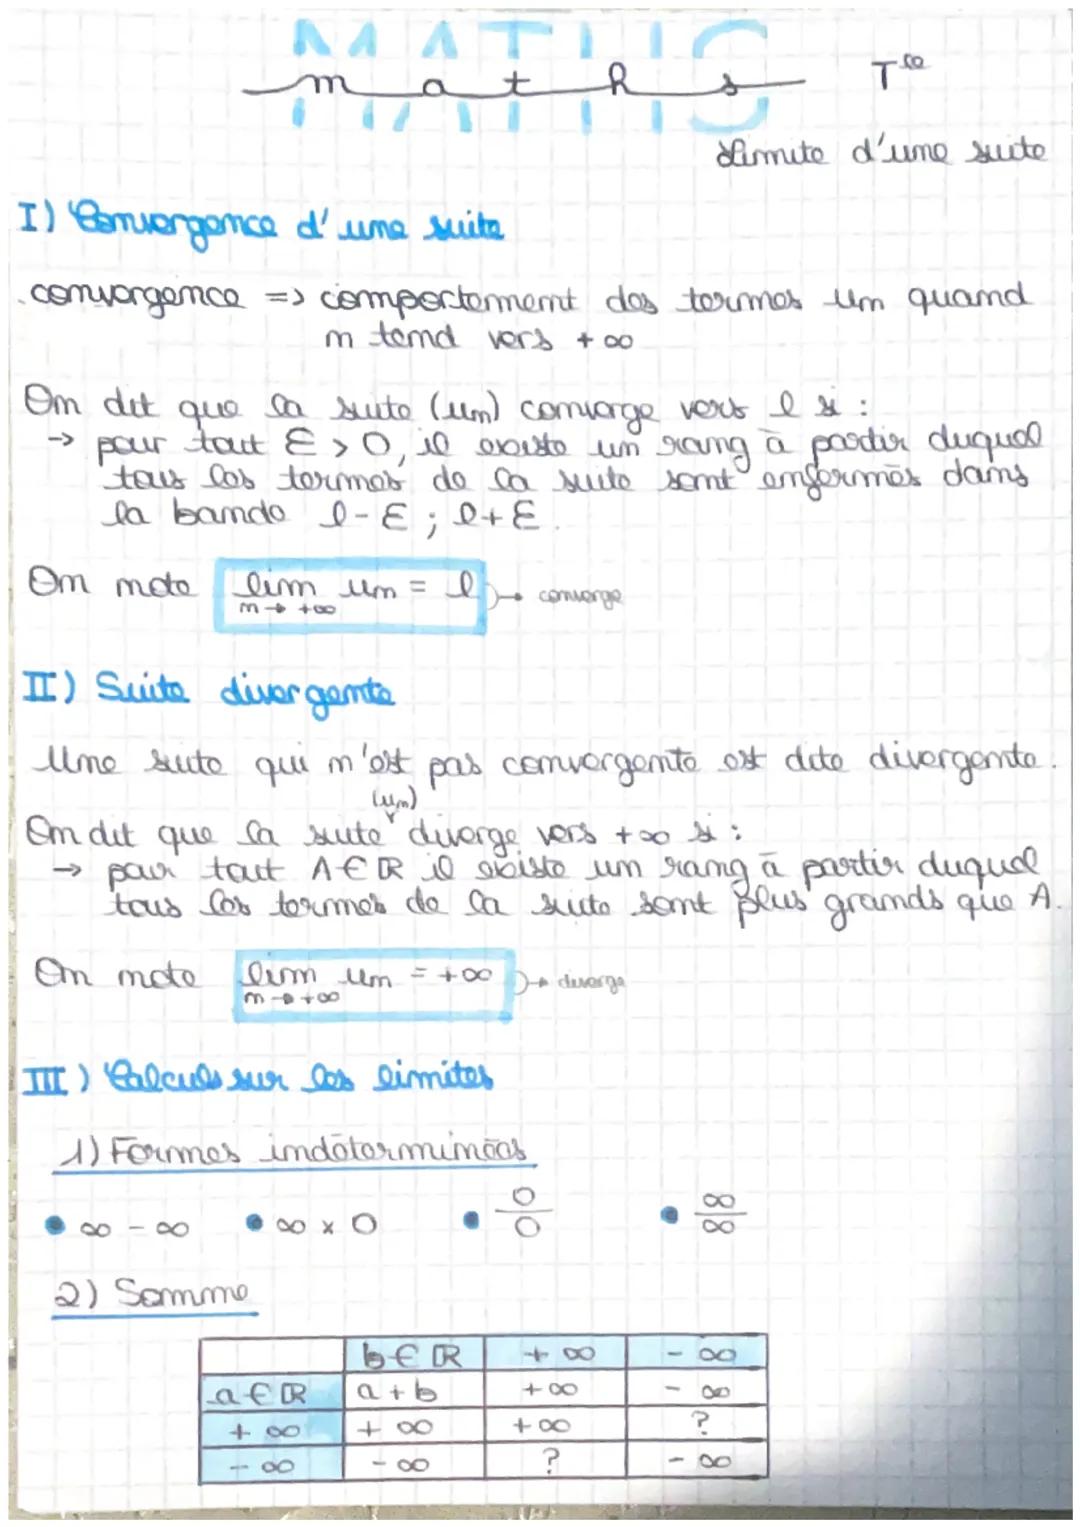 MATHS
maths Tle
Limite d'une suite
I) Convergence d'une suite
convergence => comportement des termes un quand
n tend vers +∞
On dit que la suite (un) converge vers l si :
→ pour tout ε > 0, il existe un rang à partir duquel
tous les termes de la suite sont enfermés dans
la bande l-ε ; l+ε.
On note lim un = l → converge
n→+∞
II) Suite divergente
Une suite qui n'est pas convergente est dite divergente.
(un)
On dit que la suite diverge vers +∞ si :
→ pour tout A∈ℝ il existe un rang à partir duquel
tous les termes de la suite sont plus grands que A.
On note lim un = +∞ → diverge
n→+∞
III) Calculs sur les limites
1) Formes indéterminées
• ∞ - ∞ • ∞ × 0 • 0/0 • ∞/∞
2) Somme
b∈ℝ +∞ -∞
a∈ℝ a+b +∞ -∞
+∞ +∞ +∞ ?
-∞ -∞ ? -∞